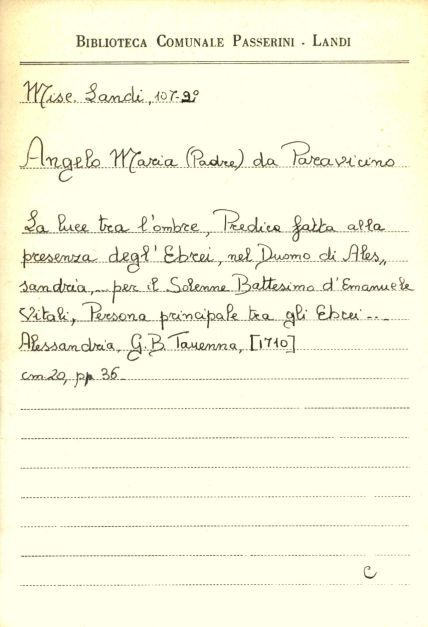 BIBLIOTECA COMUNALE PASSERINI - LANDI
Misc. Landi, 107-9º
Angelo Maria (Padre) da Paravicino
La luce tra l'ombre, Predica fatta alla
presenza degl' Ebrei, nel Duomo di Ales„
sandria, - per il Solenne Battesimo d'Emanuele
Vitali, Persona principale tra gli Ebrei ...
Alessandria, G.B. Tavenna, [1710]
cm. 20, pp 36
C